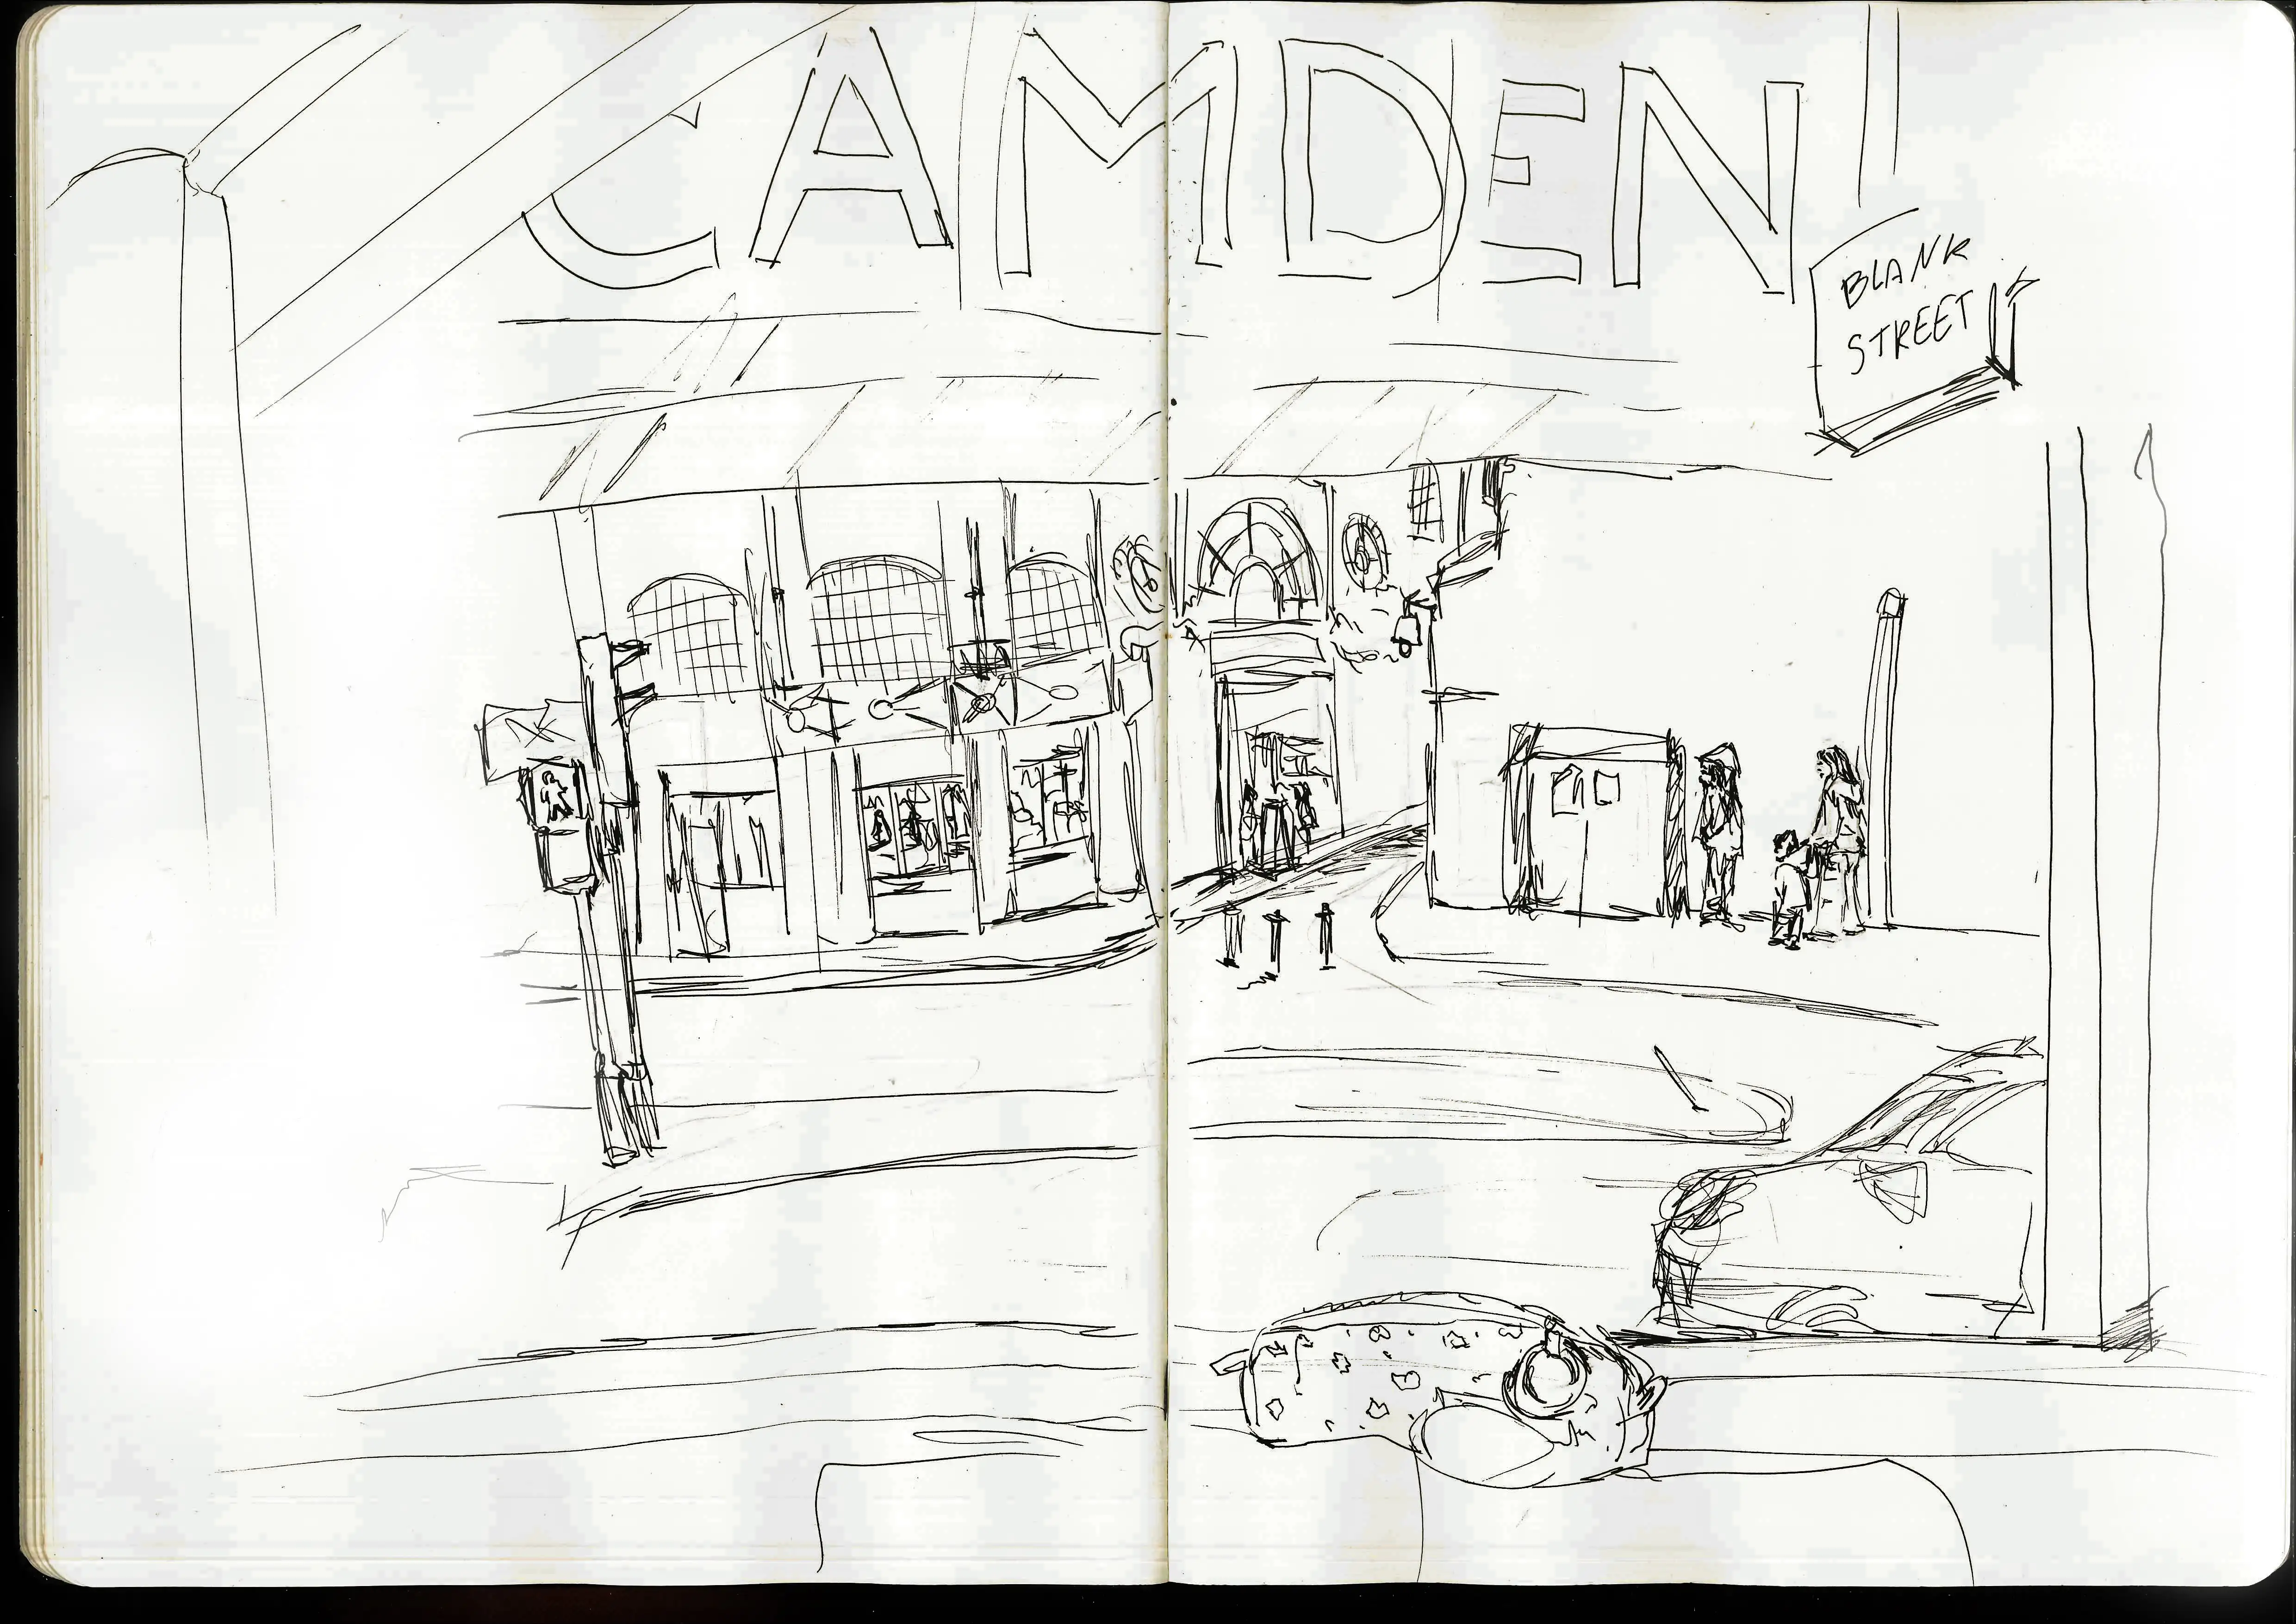 CAMDEN
BLANK
STREET